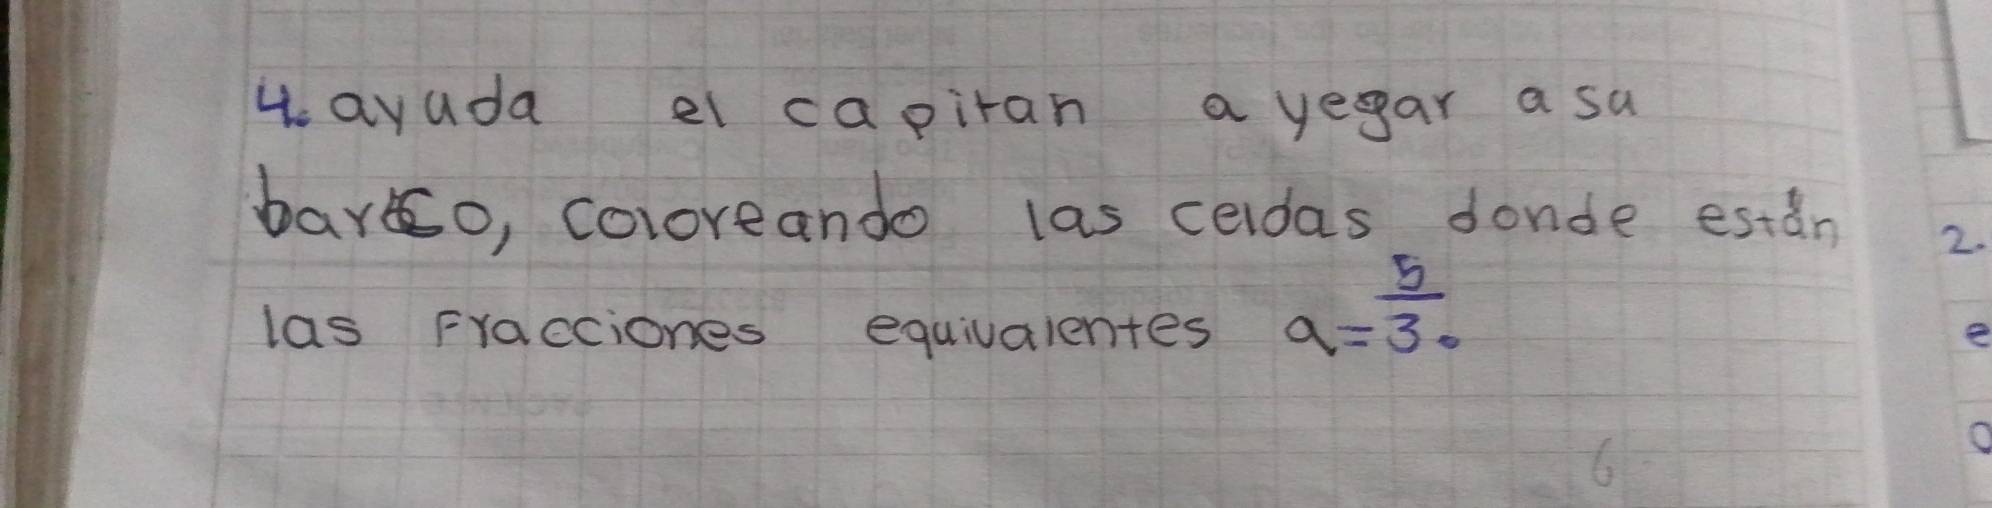 4. ayuda el capitan a yegar a su
barco, coloreando las celdas donde están
las Fracciones equivalentes a = 5/3.
6
2.
e